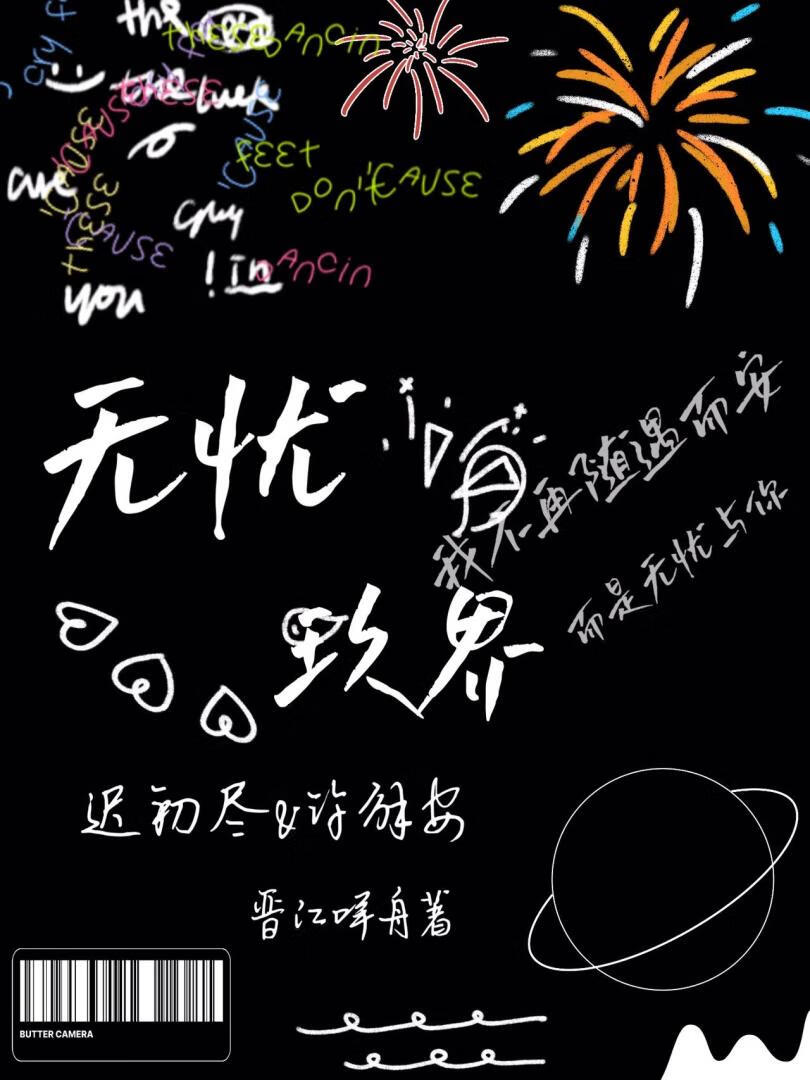 the
cry f
THESE DANCIN
the luck
CAUSE
FEET
are
DON'T CAUSE
cry
CAUSE
! in
DANCIN
you
无忧
我不再随遇而安
而是无忧与你
玖界
迟初尽&许解安
晋江咩舟著
BUTTER CAMERA